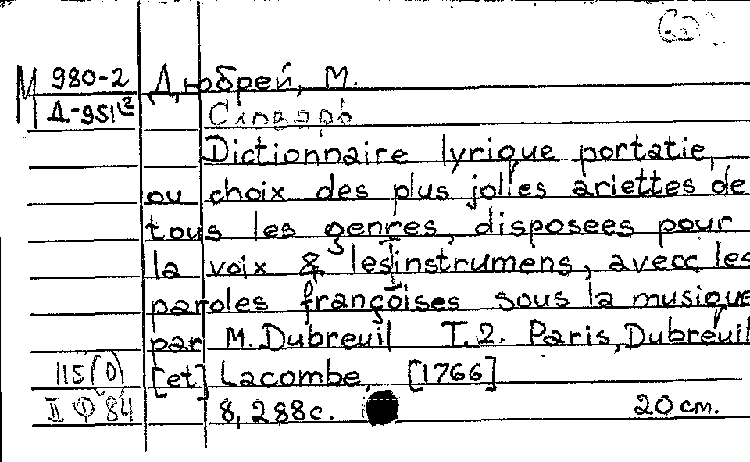 M 980-2 Дюбрей, М.
Д-951²
Словарь
Dictionnaire lyrique portatie,
ou choix des plus jolles ariettes de
tous les genres, disposees pour
la voix & les instrumens, avecc les
paroles françoises sous la musique
par M. Dubreuil T.2. Paris, Dubreuil
115(0) [et] Lacombe, [1766]
II Ф 84 8, 288c. 20 cm.